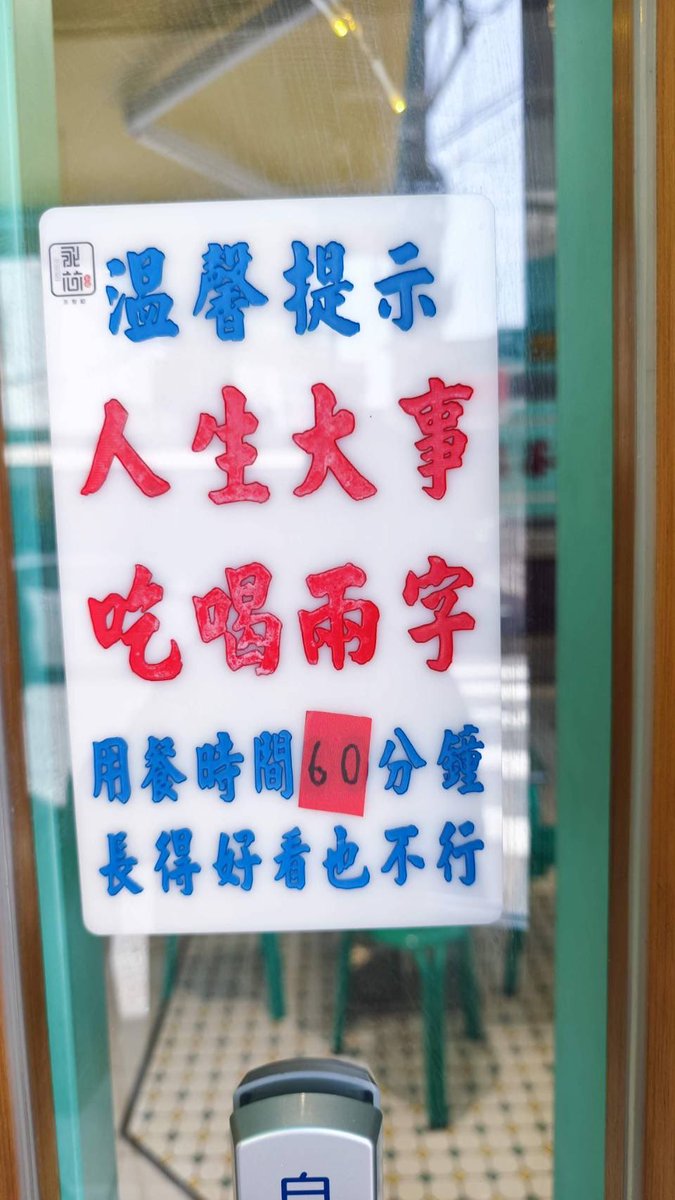 温馨提示
人生大事
吃喝兩字
用餐時間60分鐘
長得好看也不行
自